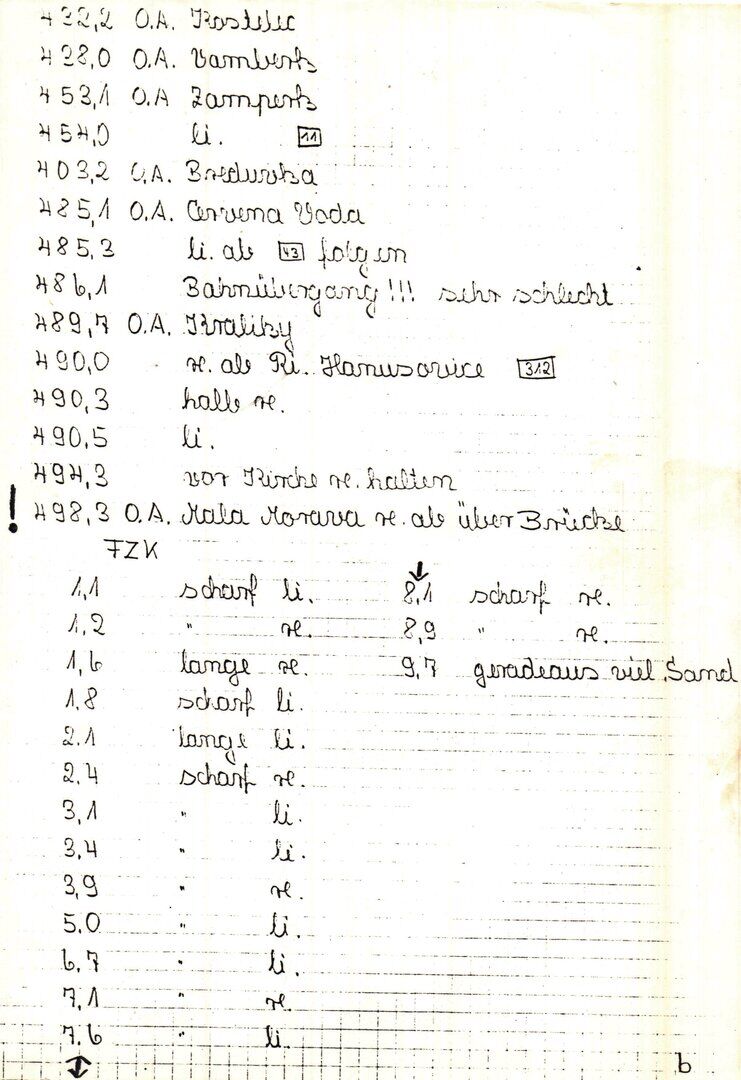 432,2 O.A. Kostelec
438,0 O.A. Vamberk
453,1 O.A Zamperk
454,0 li. 11
403,2 O.A. Bredurka
485,1 O.A. Cervena Voda
485,3 li. ab 43 folgen
486,1 Bahnübergang!!! sehr schlecht
489,7 O.A. Kraliky
490,0 re. ab Ri. Hanusovice 312
490,3 halb re.
490,5 li.
494,3 vor Kirche re. halten
! 498,3 O.A. Mala Morava re. ab über Brücke
FZK
1,1 scharf li.
1,2 " re.
1,6 lange re.
1,8 scharf li.
2.1 lange li.
2,4 scharf re.
3,1 " li.
3,4 " li.
3,9 " re.
5,0 " li.
6,7 " li.
7,1 " re.
7,6 " li.
↓
↓
8,1 scharf re.
8,9 " re.
9,7 geradeaus viel Sand
b